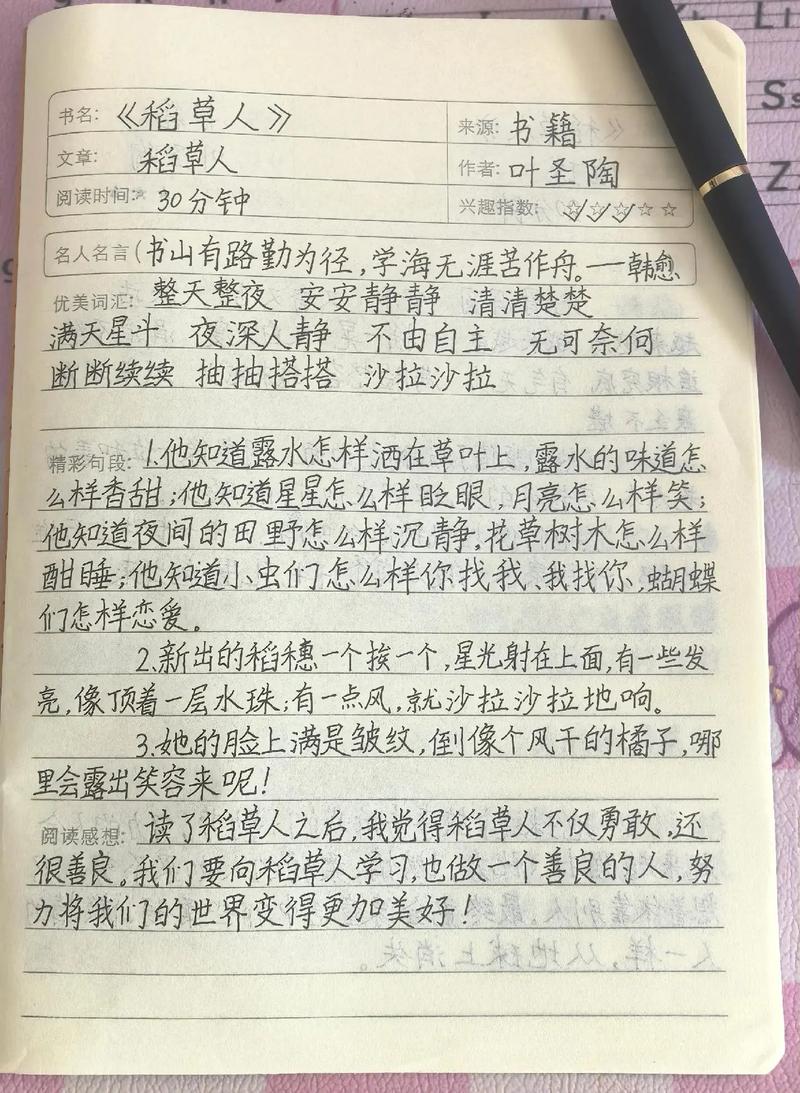 书名: 《稻草人》
来源: 书籍
文章: 稻草人
作者: 叶圣陶
阅读时间: 30分钟
兴趣指数: ☆☆☆☆☆
名人名言(书山有路勤为径,学海无涯苦作舟。——韩愈
优美词汇: 整天整夜 安安静静 清清楚楚
满天星斗 夜深人静 不由自主 无可奈何
断断续续 抽抽搭搭 沙拉沙拉
精彩句段: 1.他知道露水怎样洒在草叶上,露水的味道怎
么样香甜;他知道星星怎么样眨眼,月亮怎么样笑;
他知道夜间的田野怎么样沉静,花草树木怎么样
酣睡;他知道小虫们怎么样你找我、我找你,蝴蝶
们怎样恋爱。
2.新出的稻穗一个挨一个,星光射在上面,有一些发
亮,像顶着一层水珠;有一点风,就沙拉沙拉地响。
3.她的脸上满是皱纹,倒像个风干的橘子,哪
里会露出笑容来呢!
阅读感想: 读了稻草人之后,我觉得稻草人不仅勇敢,还
很善良。我们要向稻草人学习,也做一个善良的人,努
力将我们的世界变得更加美好!